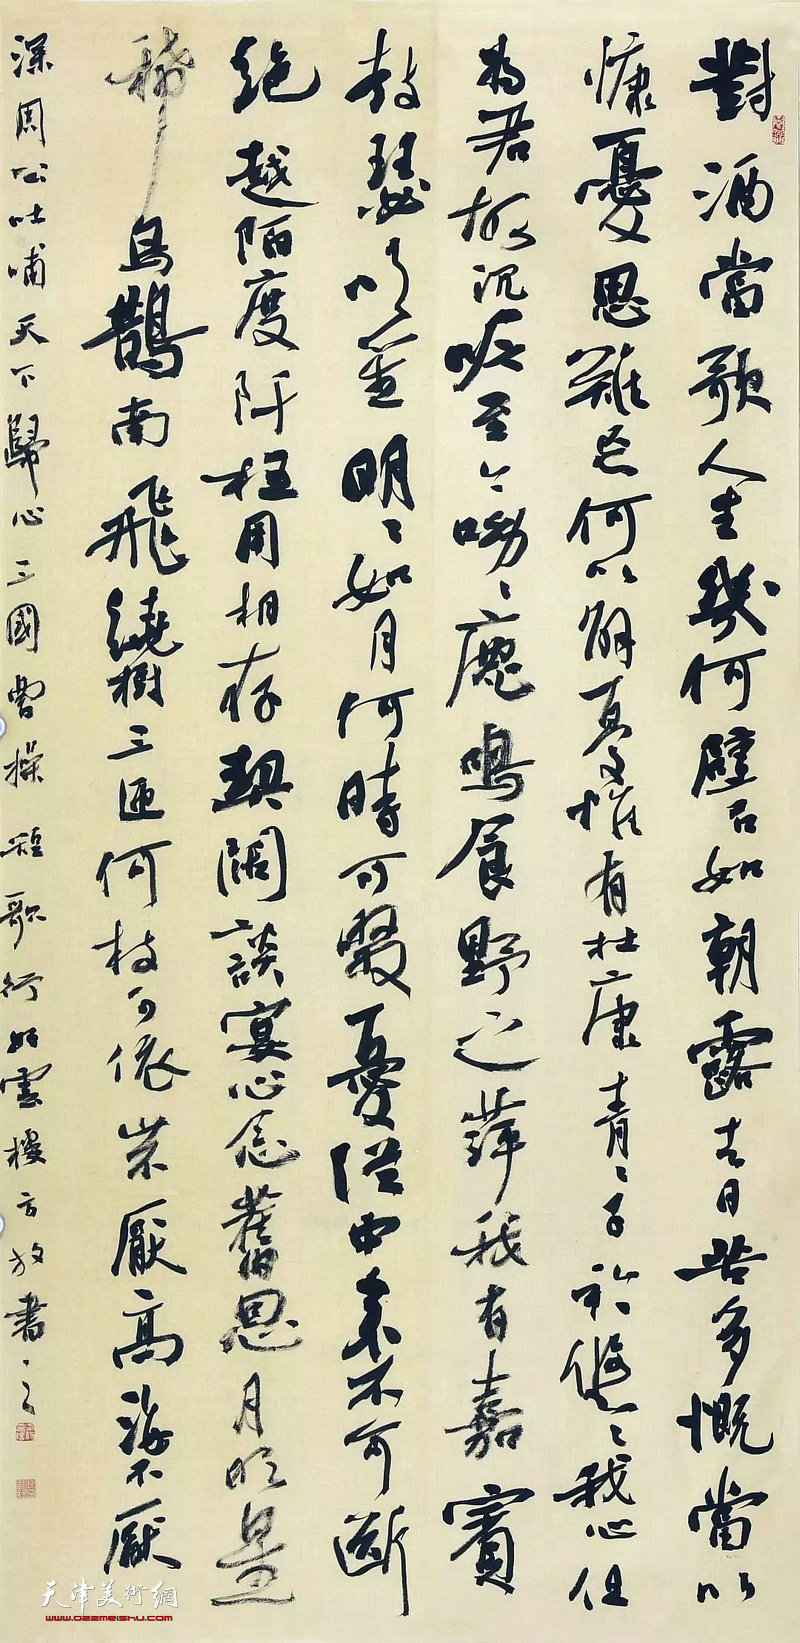 對酒當歌人生幾何譬如朝露去日苦多慨當以
慷憂思難忘何以解憂惟有杜康青〻子衿悠〻我心但
為君故沉吟至今呦〻鹿鳴食野之萍我有嘉賓
鼓瑟吹笙明〻如月何時可掇憂從中來不可斷
絕越陌度阡枉用相存契闊談宴心念舊恩月明星
稀烏鵲南飛繞樹三匝何枝可依山不厭高海不厭
深周公吐哺天下歸心三國曹操短歌行雲樓方放書之
天津美術網
www.022meishu.com